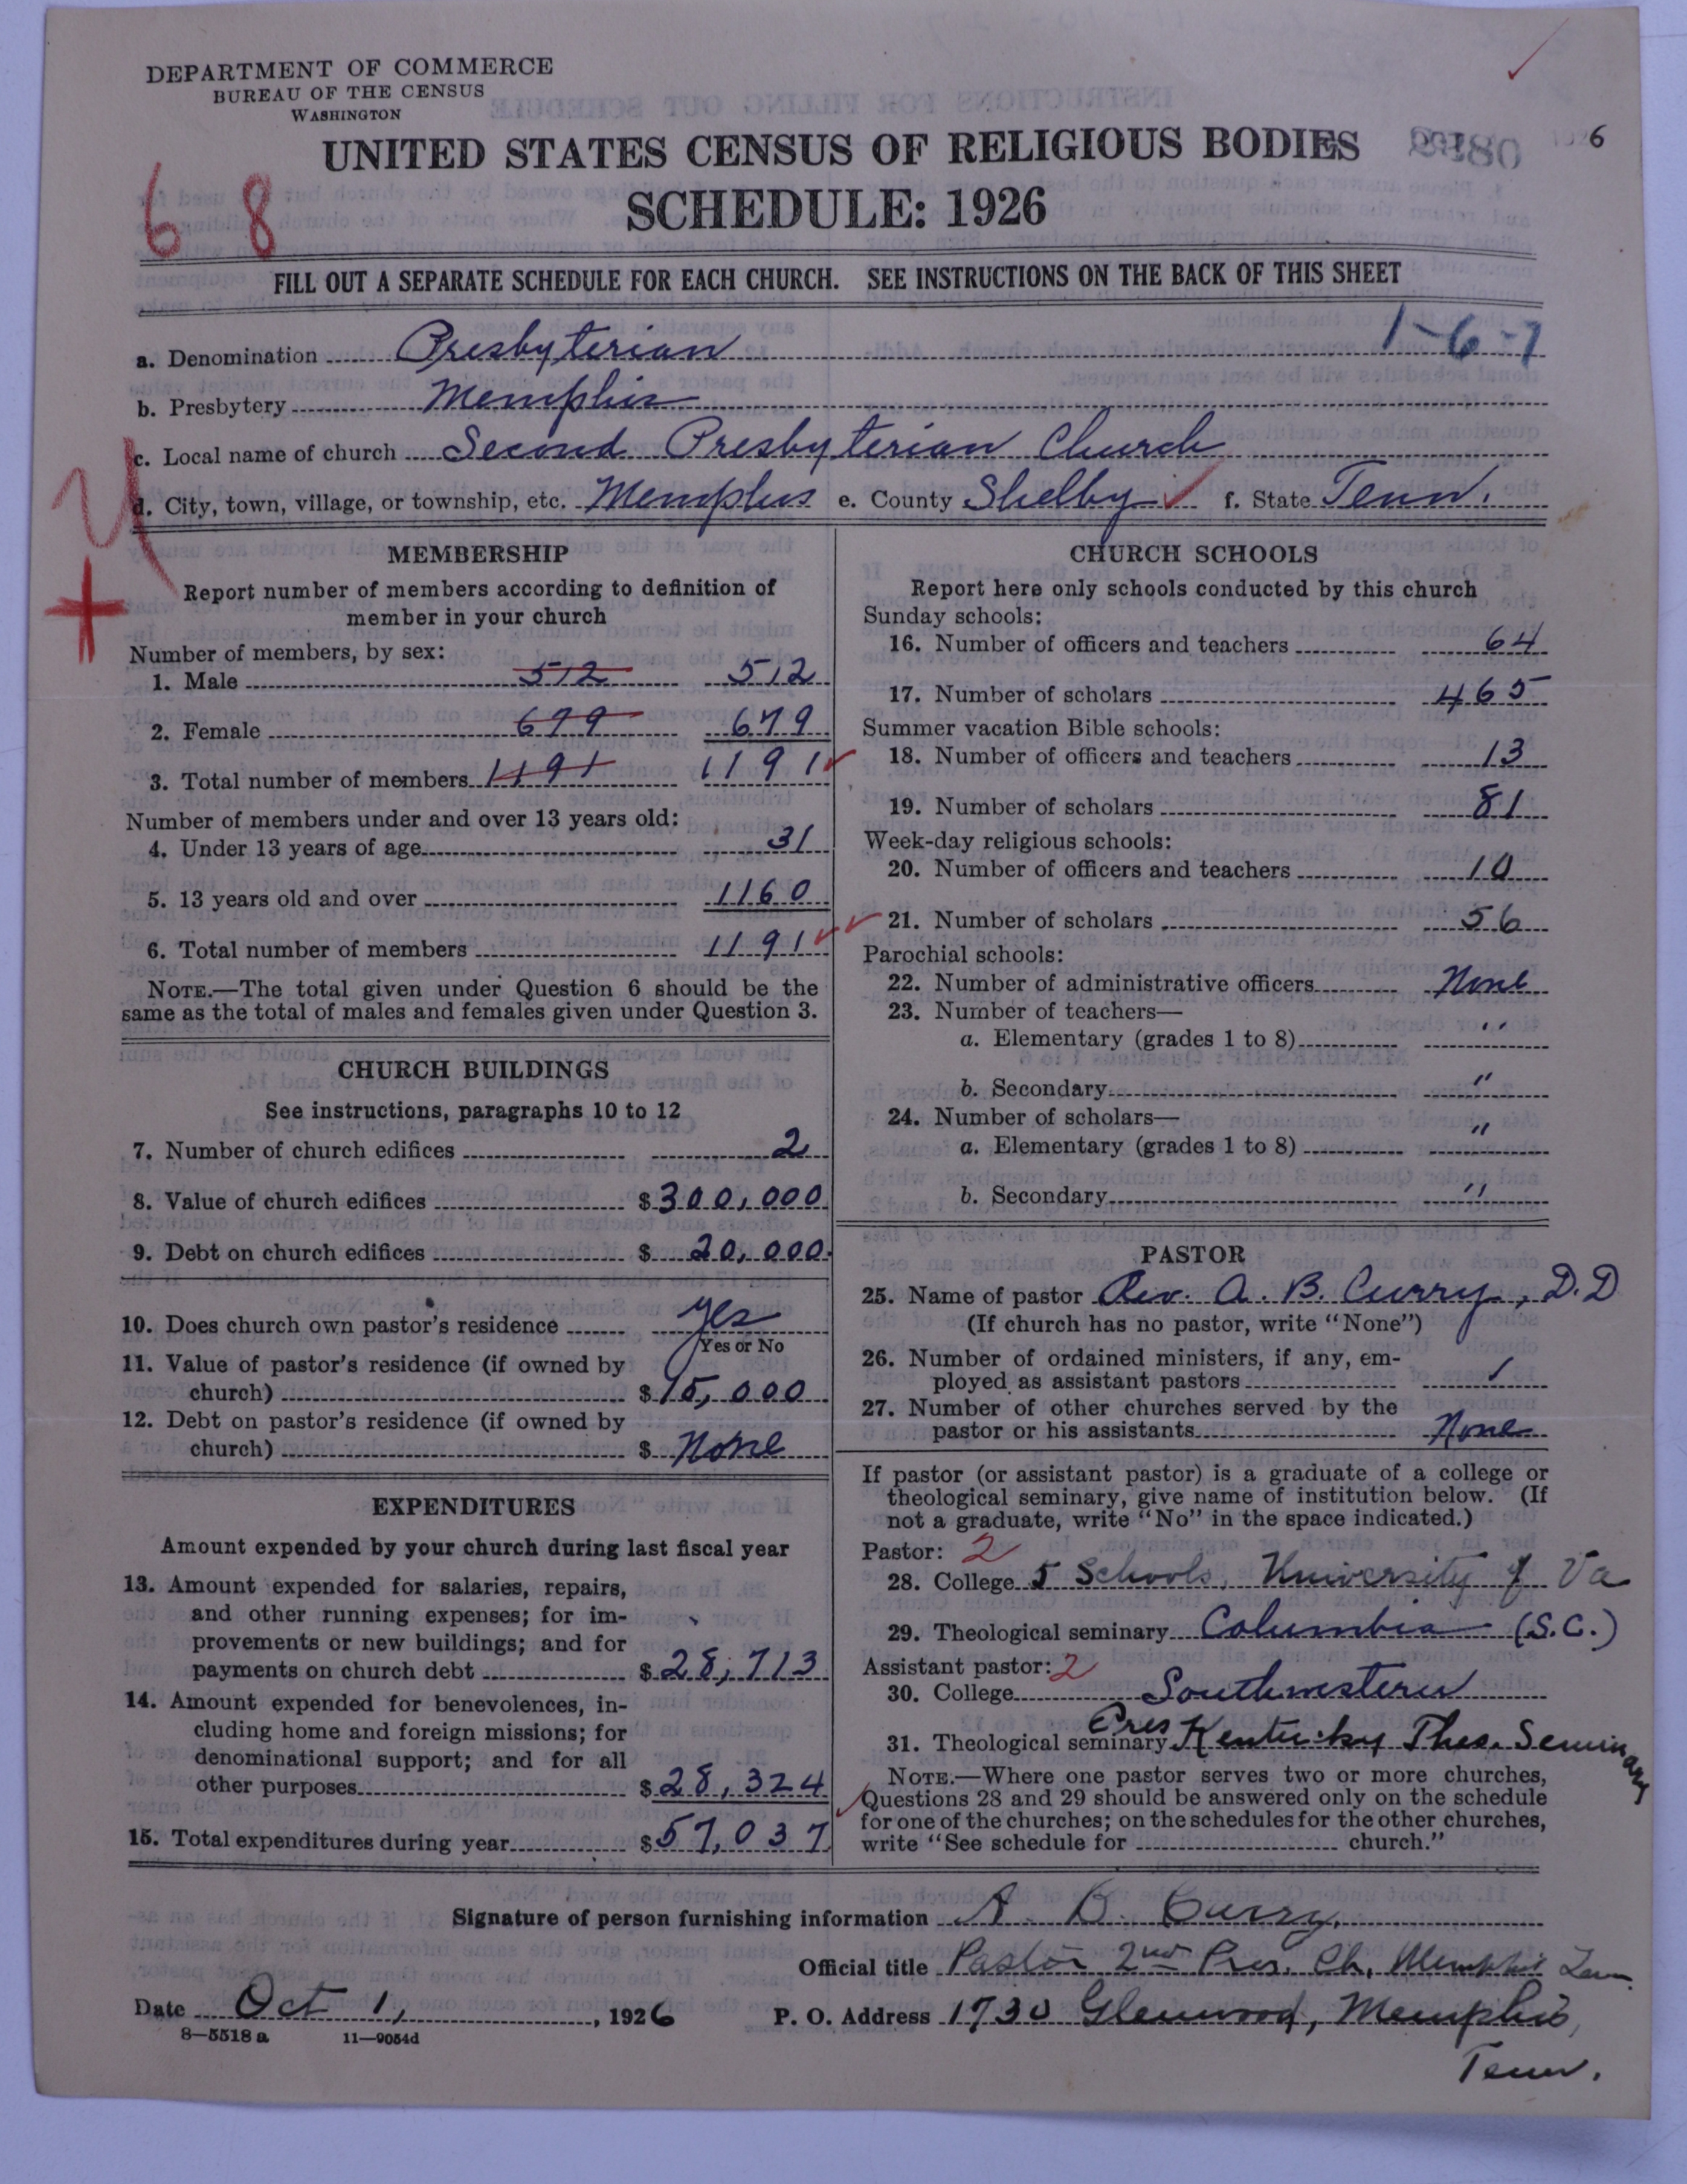 DEPARTMENT OF COMMERCE
BUREAU OF THE CENSUS
WASHINGTON
UNITED STATES CENSUS OF RELIGIOUS BODIES
6
SCHEDULE: 1926
6 8
FILL OUT A SEPARATE SCHEDULE FOR EACH CHURCH. SEE INSTRUCTIONS ON THE BACK OF THIS SHEET
1-6-7
a. Denomination Presbyterian
b. Presbytery Memphis
c. Local name of church Second Presbyterian Church
d. City, town, village, or township, etc. Memphis e. County Shelby f. State Tenn.
MEMBERSHIP
Report number of members according to definition of
member in your church
Number of members, by sex:
1. Male 512 512
2. Female 679 679
3. Total number of members 1191 1191
Number of members under and over 13 years old:
4. Under 13 years of age 31
5. 13 years old and over 1160
6. Total number of members 1191
NOTE.—The total given under Question 6 should be the
same as the total of males and females given under Question 3.
CHURCH BUILDINGS
See instructions, paragraphs 10 to 12
7. Number of church edifices 2
8. Value of church edifices $300,000
9. Debt on church edifices $ 20,000.
10. Does church own pastor's residence Yes
Yes or No
11. Value of pastor's residence (if owned by
church) $15,000
12. Debt on pastor's residence (if owned by
church) $ None
EXPENDITURES
Amount expended by your church during last fiscal year
13. Amount expended for salaries, repairs,
and other running expenses; for im-
provements or new buildings; and for
payments on church debt $28,713
14. Amount expended for benevolences, in-
cluding home and foreign missions; for
denominational support; and for all
other purposes $28,324
15. Total expenditures during year $57,037
CHURCH SCHOOLS
Report here only schools conducted by this church
Sunday schools:
16. Number of officers and teachers 64
17. Number of scholars 465
Summer vacation Bible schools:
18. Number of officers and teachers 13
19. Number of scholars 81
Week-day religious schools:
20. Number of officers and teachers 10
21. Number of scholars 56
Parochial schools:
22. Number of administrative officers None
23. Number of teachers—
a. Elementary (grades 1 to 8) "
b. Secondary "
24. Number of scholars—
a. Elementary (grades 1 to 8) "
b. Secondary "
PASTOR
25. Name of pastor Rev. A. B. Curry, D.D
(If church has no pastor, write "None")
26. Number of ordained ministers, if any, em-
ployed as assistant pastors 1
27. Number of other churches served by the
pastor or his assistants None
If pastor (or assistant pastor) is a graduate of a college or
theological seminary, give name of institution below. (If
not a graduate, write "No" in the space indicated.)
Pastor: 2
28. College 5 Schools, University of Va
29. Theological seminary Columbia (S.C.)
Assistant pastor: 2
30. College Southwestern
31. Theological seminary Pres Kentucky Theo. Seminary
NOTE.—Where one pastor serves two or more churches,
Questions 28 and 29 should be answered only on the schedule
for one of the churches; on the schedules for the other churches,
write "See schedule for church."
Signature of person furnishing information A. B. Curry.
Official title Pastor 2nd Pres. Ch, Memphis Tenn.
Date Oct 1, , 1926 P. O. Address 1730 Glenwood, Memphis,
Tenn.
8—5518 a 11—9054d